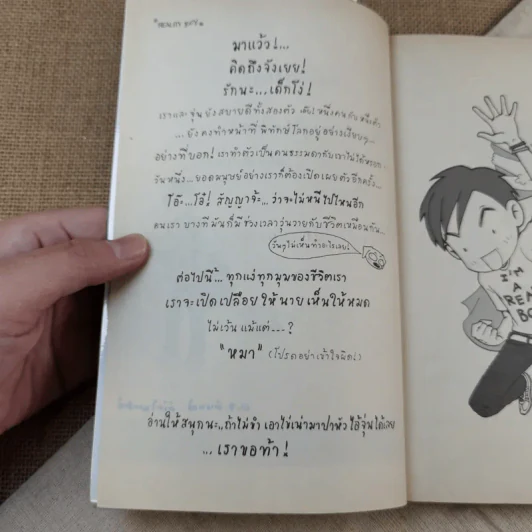 มาแว้ว!...
คิดถึงจังเยย!
รักนะ...เด็กโง่!
เราและจุ่นยังสบายดีทั้งสองตัว เอ๊ย! หนึ่งคนกับหนึ่งตัว
...ยังคงทำหน้าที่ พิทักษ์โลกอยู่อย่างเงียบๆ...
อย่างที่บอก! เราทำตัวเป็นคนธรรมดากับเขาไม่ได้หรอก
วันหนึ่ง...ยอดมนุษย์อย่างเราก็ต้องเปิดเผยตัวอีกครั้ง...
โอ๊ะ...โอ๋! สัญญาจ้ะ...ว่าจะไม่หนีไปไหนอีก
คนเรา บางทีมันก็มี ช่วงเวลาวุ่นวายกับชีวิตเหมือนกัน...
วันๆไม่เห็นทำอะไรเลย!
ต่อไปนี้... ทุกแง่ทุกมุมของชีวิตเรา
เราจะเปิดเปลือย ให้นาย เห็นให้หมด
ไม่เว้น แม้แต่....?
"หมา" (โปรดอย่าเข้าใจผิด!)
อ่านให้สนุกนะ..ถ้าไม่ขำ เอาไข่เน่ามาปาหัวไอ้จุ่นได้เลย
... เราขอท้า!
I'M
A